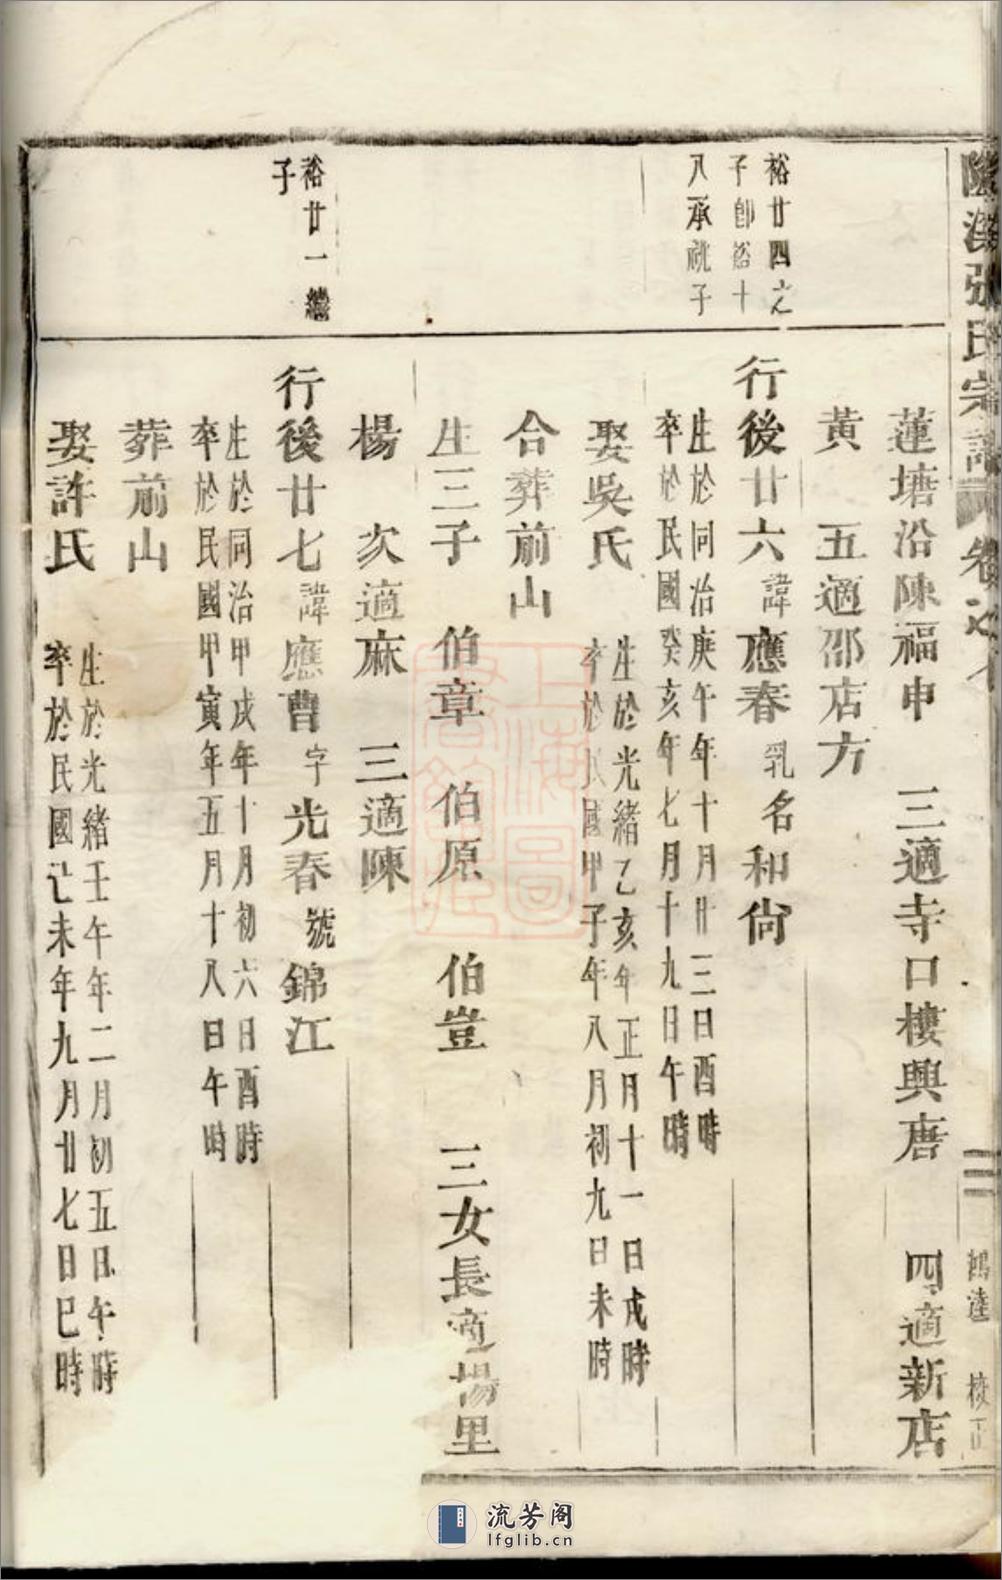 張氏宗譜 卷之
鴻逵 校正
蓮塘沿陳福申 三適寺口樓興唐 四適新店
黃 五適邵店方
裕廿四之
子卽裕十
八承祧子
行後廿六諱應春乳名和尙
生於同治庚午年十月廿三日酉時
卒於民國癸亥年七月十九日午時
娶吳氏
生於光緒乙亥年正月十一日戌時
卒於民國甲子年八月初九日未時
合葬前山
生三子 伯章 伯原 伯豈 三女長適楊里
楊 次適麻 三適陳
裕廿一繼
子
行後廿七諱應曹字光春號錦江
生於同治甲戌年十月初六日酉時
卒於民國甲寅年五月十八日午時
葬前山
娶許氏
生於光緒壬午年二月初五日午時
卒於民國己未年九月廿七日巳時
上海圖書館藏
流芳阁
lfglib.cn